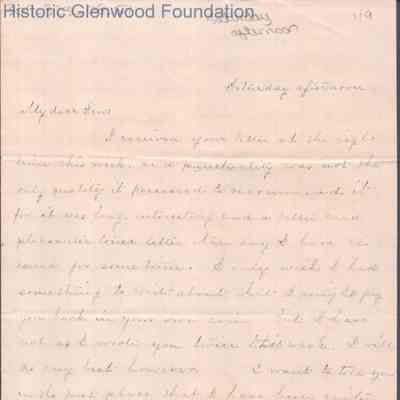 Historic Glenwood Foundation.
1/9
Saturday afternoon
My dear
I received your letter at the right
time this week, and punctuality was not the
only quality it possessed to recommend it
for it was long interesting and a better and
pleasanter toned letter than any I have re
ceived for some time. I only wish I had
something to write about that I might pay
you back in your own coin. but I have
not as I wrote you twice this week. I will
do my best however. I want to tell you
in the first place that I have been quite